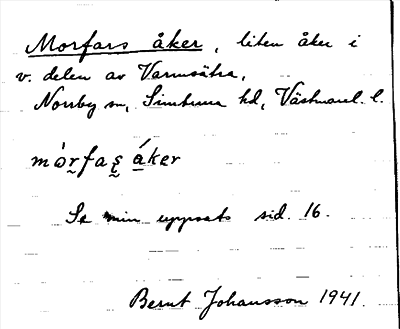 Morfars åker, liten åker i
v. delen av Varmsätra,
Norrby sn, Simtuna hd, Västmanl. l.
mòrfaș áker
Se min uppsats sid. 16.
Bernt Johansson 1941.